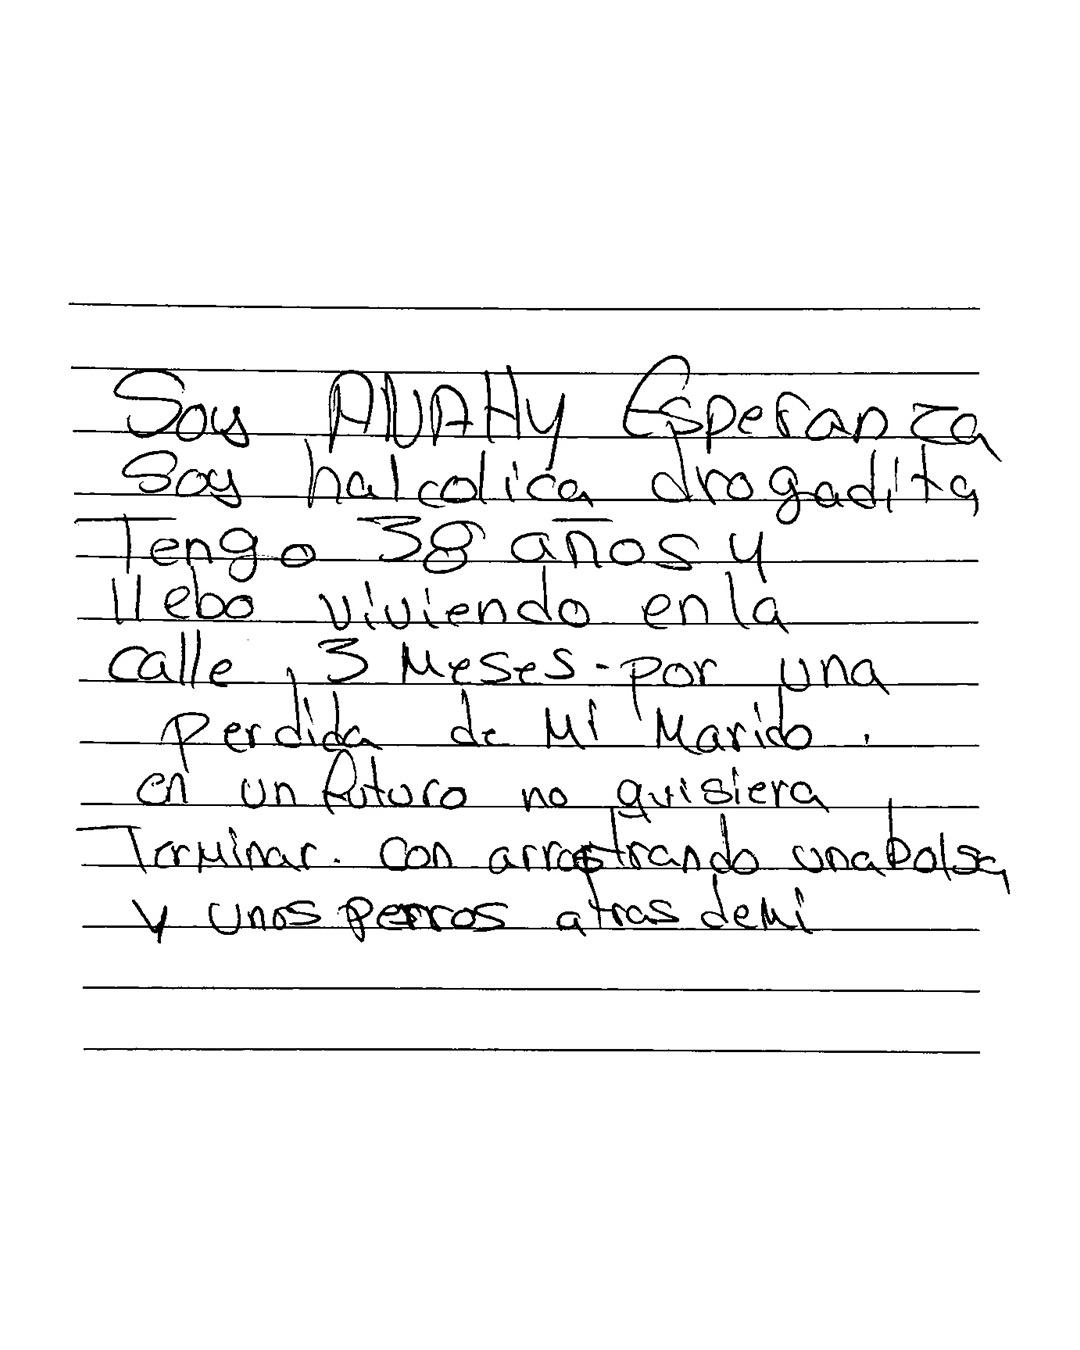 Soy ANAHy Esperanza
Soy halcolica drogadita
Tengo 38 años y
llebo viviendo en la
calle, 3 Meses - por una
perdida de Mi Marido.
en un futuro no quisiera
Terminar. con arrastrando una bolsa
y unos perros atras demi